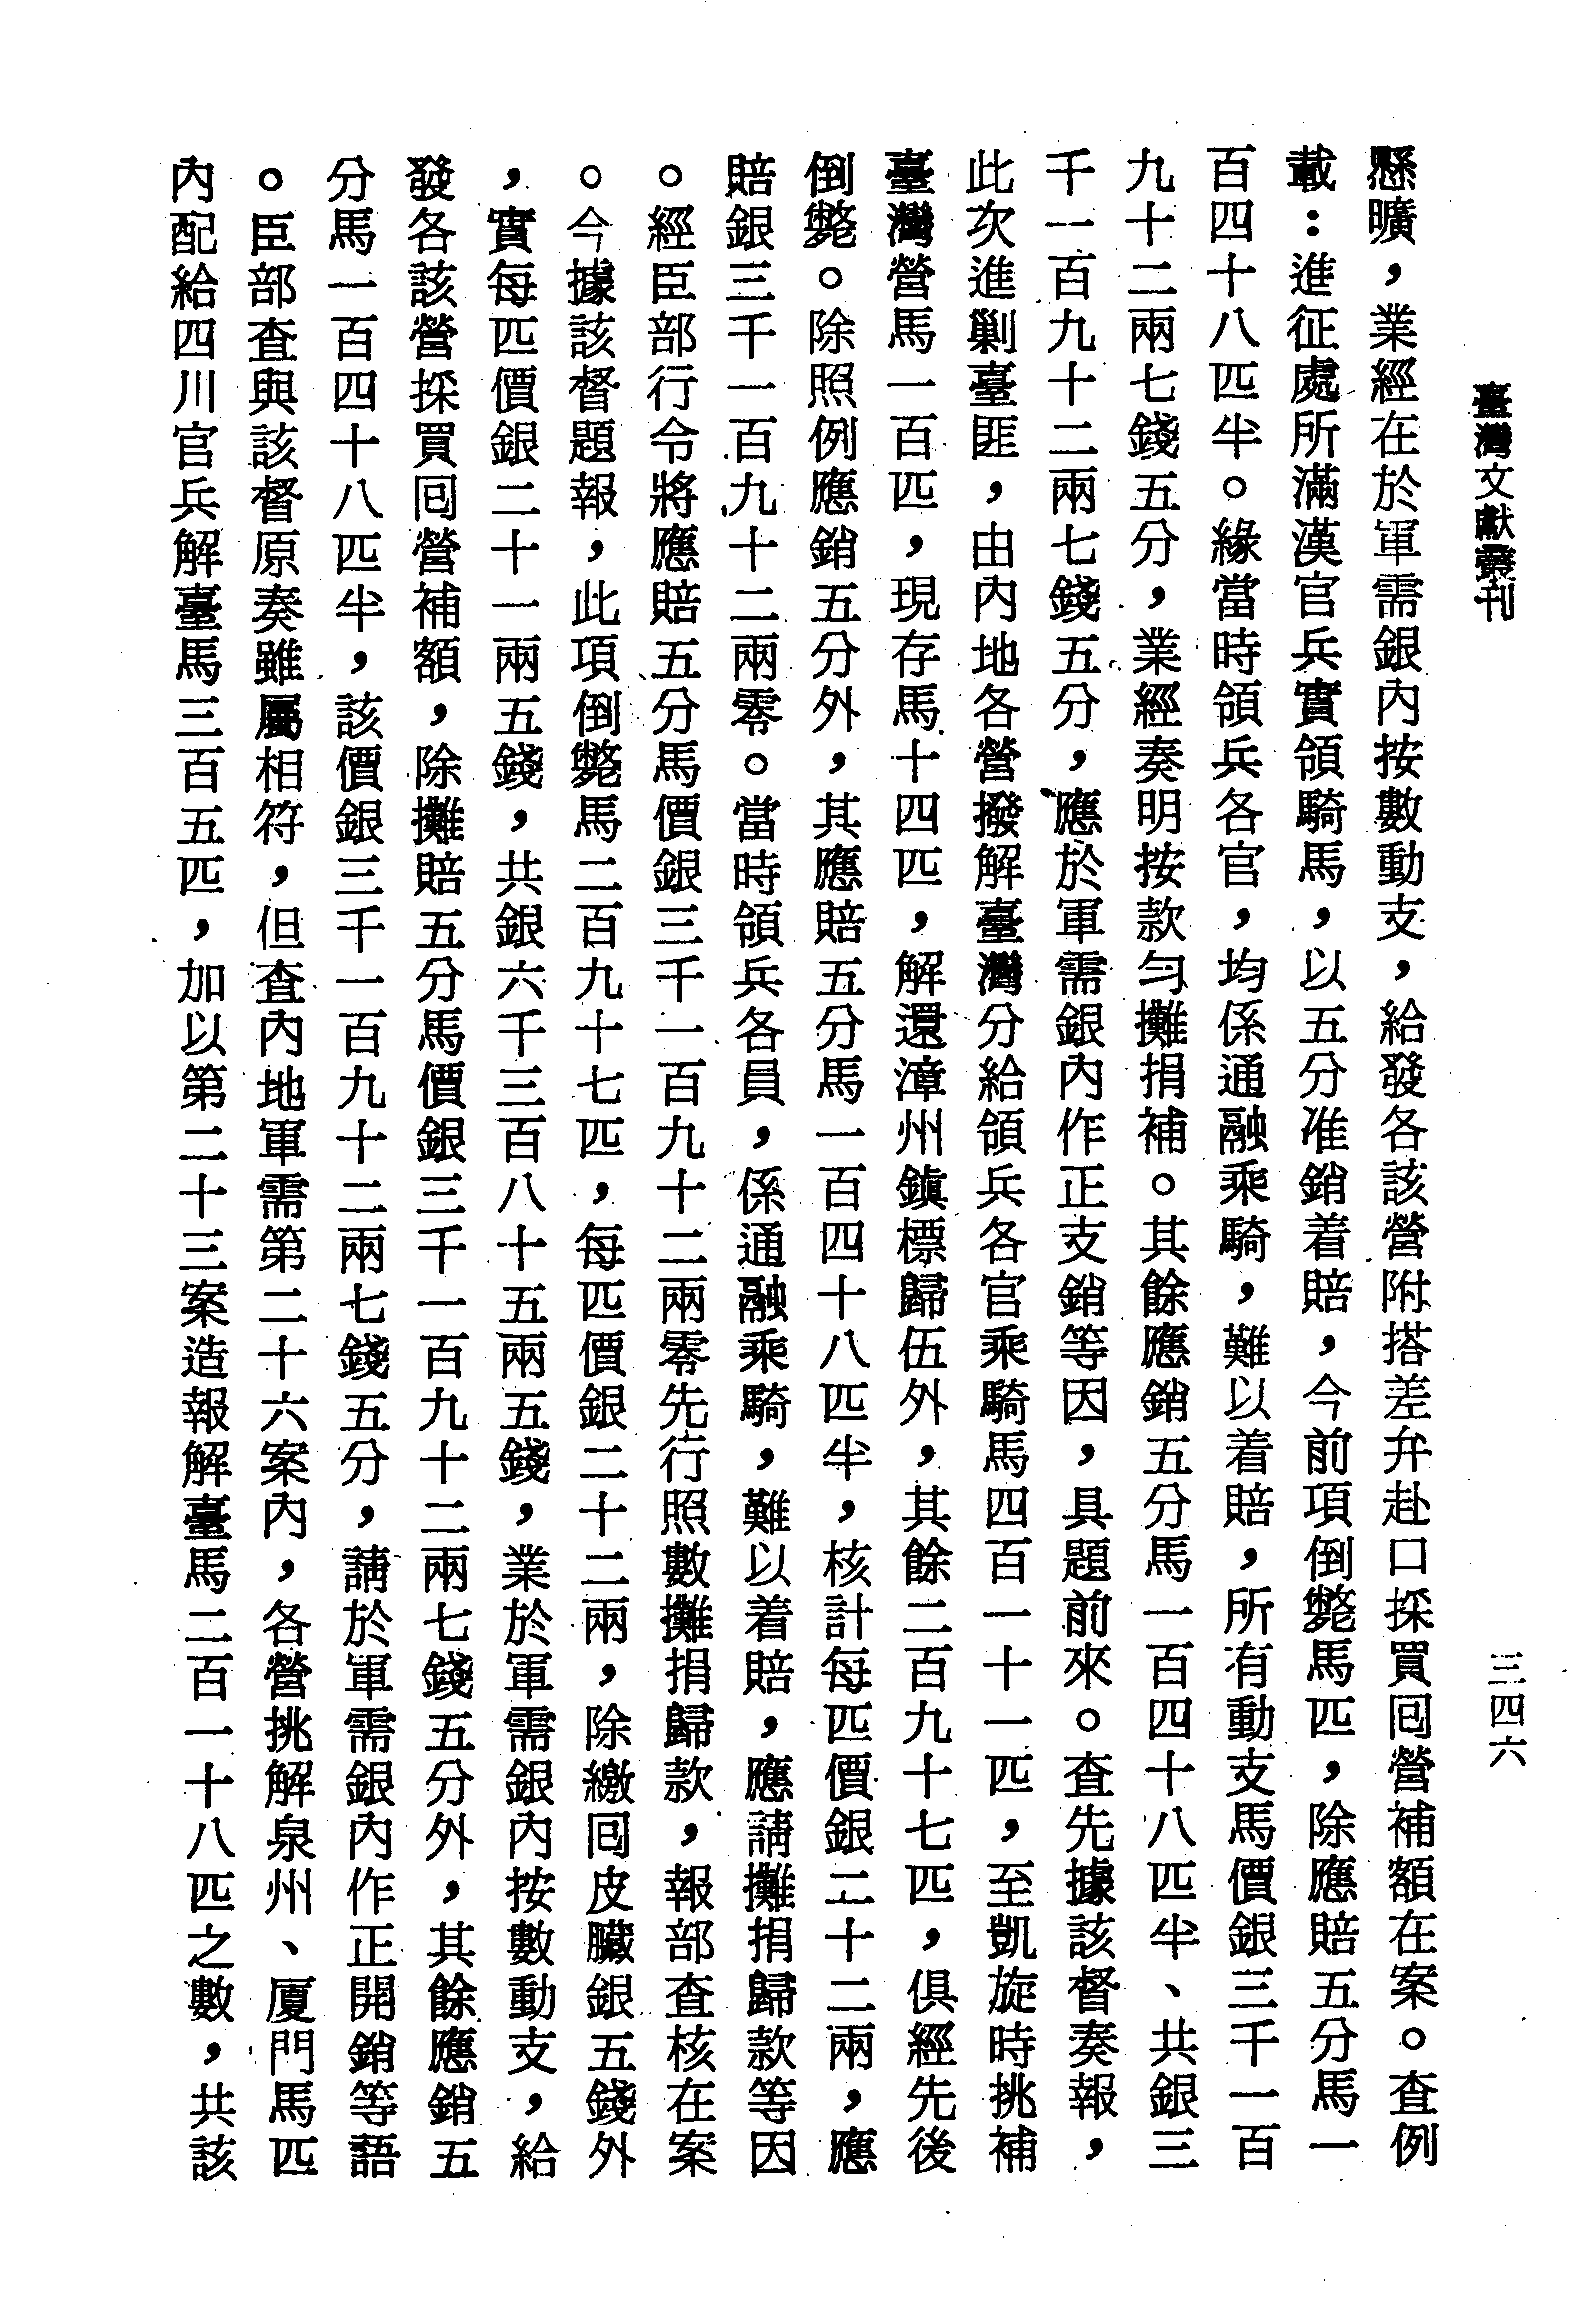 臺灣文獻叢刊
三四六
懸曠，業經在於軍需銀內按數動支，給發各該營附搭差弁赴口採買囘營補額在案。查例
載：進征處所滿漢官兵實領騎馬，以五分准銷着賠，今前項倒斃馬匹，除應賠五分馬一
百四十八匹半。緣當時領兵各官，均係通融乘騎，難以着賠，所有動支馬價銀三千一百
九十二兩七錢五分，業經奏明按款勻攤捐補。其餘應銷五分馬一百四十八匹半、共銀三
千一百九十二兩七錢五分，應於軍需銀內作正支銷等因，具題前來。查先據該督奏報，
此次進剿臺匪，由內地各營撥解臺灣分給領兵各官乘騎馬四百一十一匹，至凱旋時挑補
臺灣營馬一百匹，現存馬十四匹，解還漳州鎮標歸伍外，其餘二百九十七匹，俱經先後
倒斃。除照例應銷五分外，其應賠五分馬一百四十八匹半，核計每匹價銀二十二兩，應
賠銀三千一百九十二兩零。當時領兵各員，係通融乘騎，難以着賠，應請攤捐歸款等因
。經臣部行令將應賠五分馬價銀三千一百九十二兩零先行照數攤捐歸款，報部查核在案
。今據該督題報，此項倒斃馬二百九十七匹，每匹價銀二十二兩，除繳囘皮臟銀五錢外
，實每匹價銀二十一兩五錢，共銀六千三百八十五兩五錢，業於軍需銀內按數動支，給
發各該營採買囘營補額，除攤賠五分馬價銀三千一百九十二兩七錢五分外，其餘應銷五
分馬一百四十八匹半，該價銀三千一百九十二兩七錢五分，請於軍需銀內作正開銷等語
。臣部查與該督原奏雖屬相符，但查內地軍需第二十六案內，各營挑解泉州、厦門馬匹
內配給四川官兵解臺馬三百五匹，加以第二十三案造報解臺馬二百一十八匹之數，共該